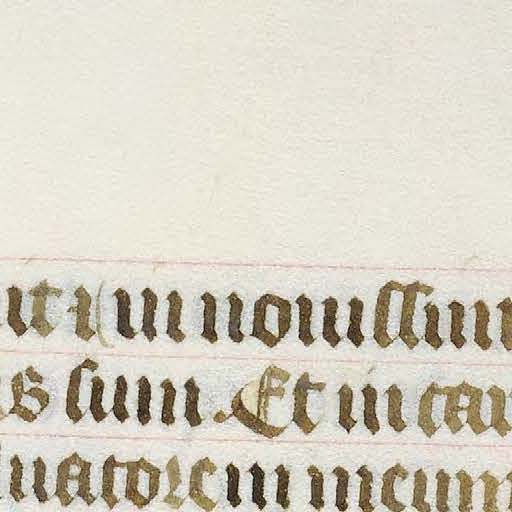 uit ⁊ in nouissim
us sum. Et in car
luatorem meum